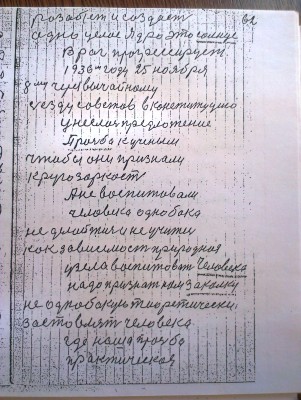 62
розабъет и создаст
одно целое Ядро это солнце
Враг прогрессирует.
1936му году 25 ноября
8му чрезвычайному
съезду советов в Конституцию
унеслось предложение
Прозба к ученым
чтобы они признали
кругозаркост
А не воспитовали
человека однобака
не далбили и не учитки
как зависемост природная
узела воспитоват Человека
надо признат нам Закалку
не однобакую тиоретически,
заставлят человека
где наша прозба
практическая